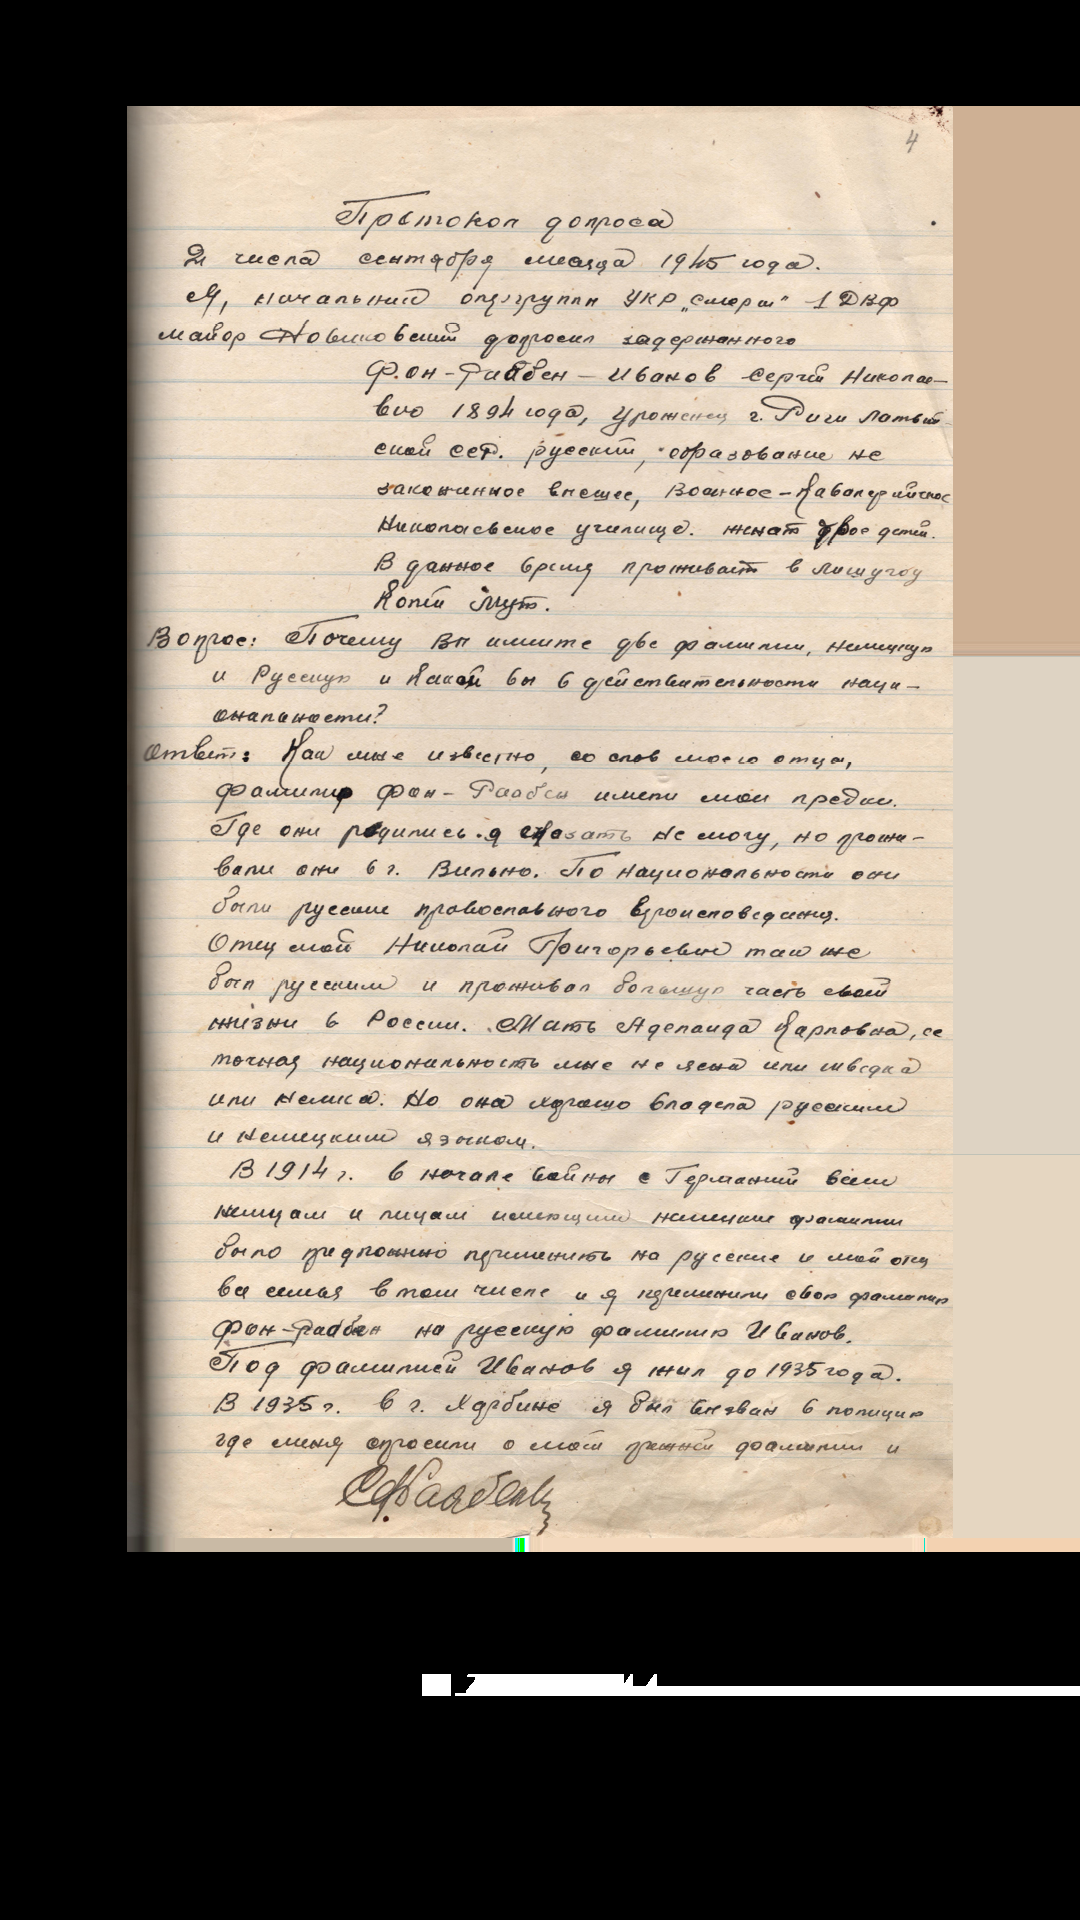 4
Протокол допроса
2 числа сентября месяца 1945 года.
Я, начальник опергруппы УКР „Смерш" 1 ДВФ
майор Новиковский допросил задержанного
Фон-Раабен – Иванов Сергей Николае-
вич 1894 года, уроженец г. Риги Латвий-
ской ССР. русский, образование не
законченное высшее, Военное-Кавалерийское
Николаевское училище. женат двое детей.
В данное время проживает в
Вопрос: Почему Вы имеите две фамилии, немецкую
и Русскую и какой вы в действительности наци-
ональности?
Ответ: Как мне известно, со слов моего отца,
фамилию фон-Раабен имели мои предки.
Где они родились я сказать не могу, но прожи-
вали они в г. Вильно. По национальности они
были русские православного вероисповедания.
Отец мой Николай Григорьевич так же
был русским и проживал большую часть своей
жизни в России. Мать Аделаида Карловна, ее
точная национальность мне не ясна или шведка
или немка. Но она хорошо владела русским
и немецким языком.
В 1914 г. в начале войны с Германий всем
немцам и лицам имеющим немецкие фамилии
было предложено переменить на русские и мой отец
вся семья в том числе и я переменили свою фамилию
фон-Раабен на русскую фамилию Иванов.
Под фамилией Иванов я жил до 1935 года.
В 1935 г. в г. Харбине я был вызван в полицию
где меня опросили о моей прежней фамилии и